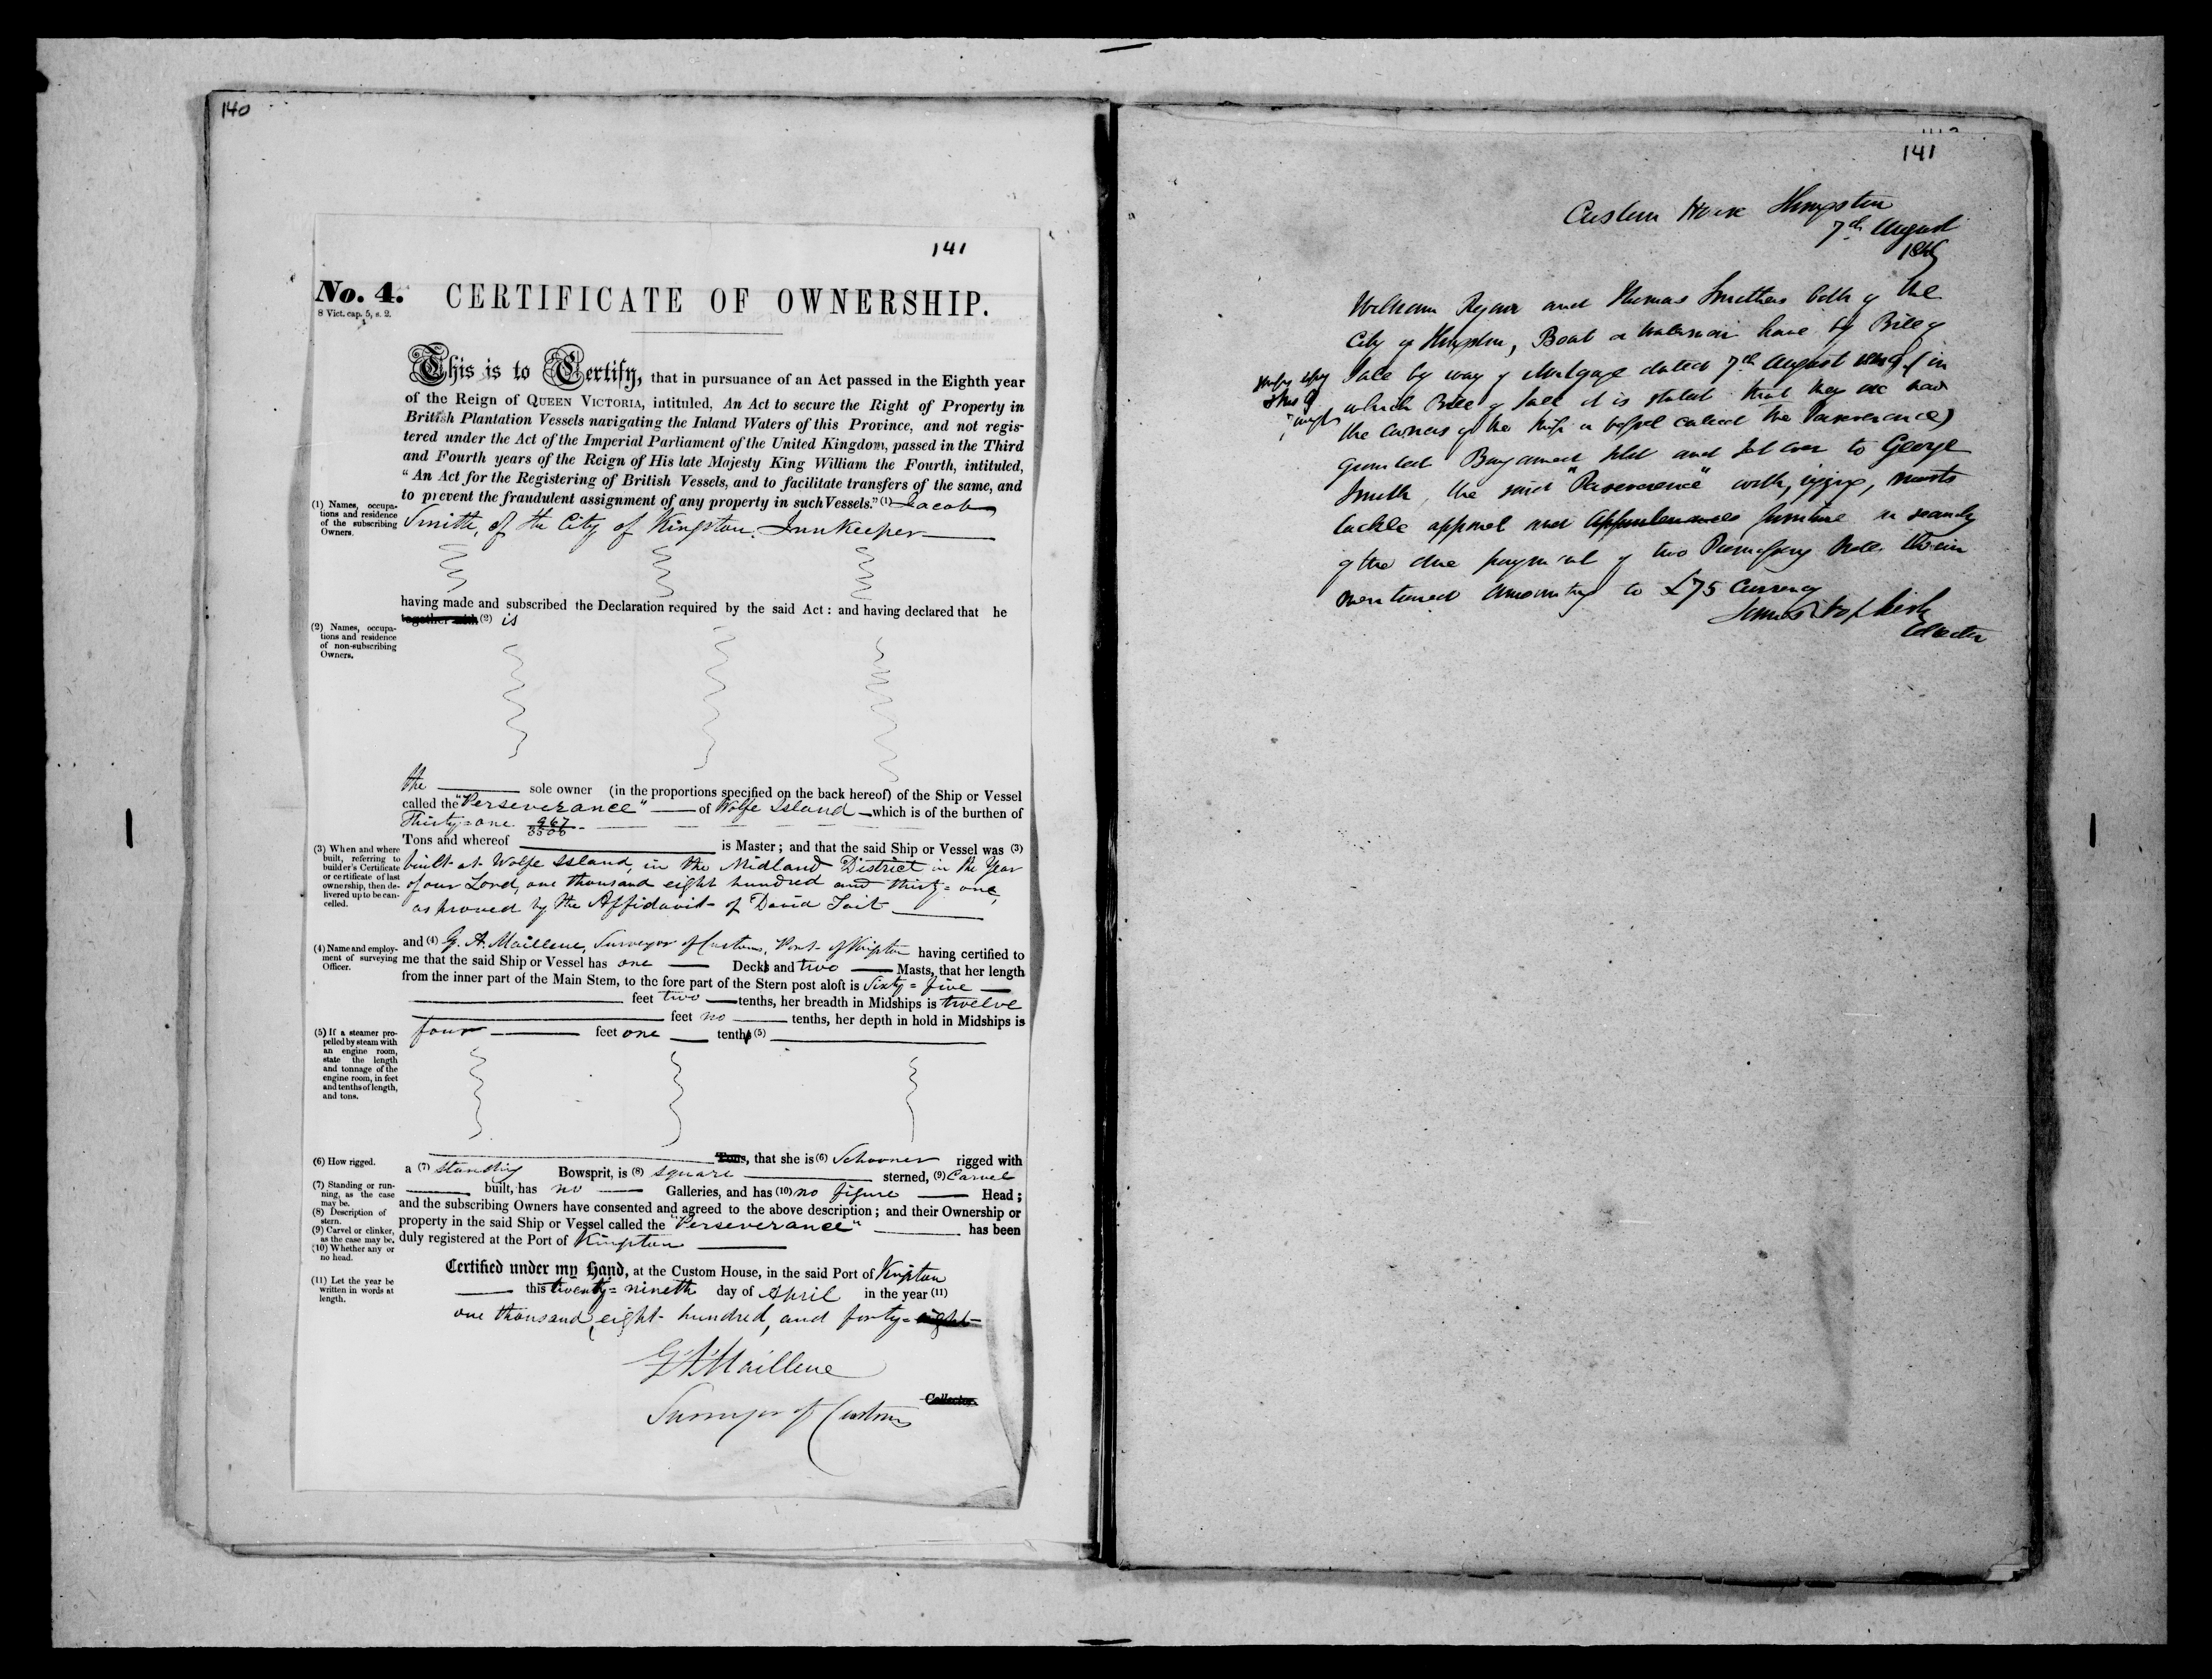 140
141
No. 4. CERTIFICATE OF OWNERSHIP.
8 Vict. cap. 5, s. 2.
This is to Certify, that in pursuance of an Act passed in the Eighth year
of the Reign of QUEEN VICTORIA, intituled, An Act to secure the Right of Property in
British Plantation Vessels navigating the Inland Waters of this Province, and not regis-
tered under the Act of the Imperial Parliament of the United Kingdom, passed in the Third
and Fourth years of the Reign of His late Majesty King William the Fourth, intituled,
"An Act for the Registering of British Vessels, and to facilitate transfers of the same, and
to prevent the fraudulent assignment of any property in such Vessels." (1) Jacob
(1) Names, occupa-
tions and residence
of the subscribing
Owners.
Smith, of the City of Kingston, InnKeeper
having made and subscribed the Declaration required by the said Act: and having declared that he
together with (2) is
(2) Names, occupa-
tions and residence
of non-subscribing
Owners.
the sole owner (in the proportions specified on the back hereof) of the Ship or Vessel
called the "Perseverance" of Wolfe Island which is of the burthen of
Thirty=one 967/3500
Tons and whereof is Master; and that the said Ship or Vessel was (3)
(3) When and where
built, referring to
builder's Certificate
or certificate of last
ownership, then de-
livered up to be can-
celled.
built at Wolfe Island, in the Midland District in the Year
of our Lord, one thousand eight hundred and thirty=one,
as proved by the Affidavit of David Tait
and (4) G. A. Mailleue, Surveyor of Customs, Port of Kingston having certified to
(4) Name and employ-
ment of surveying
Officer.
me that the said Ship or Vessel has one Decks and two Masts, that her length
from the inner part of the Main Stem, to the fore part of the Stern post aloft is Sixty=five
feet two tenths, her breadth in Midships is twelve
feet no tenths, her depth in hold in Midships is
four feet one tenths (5)
(5) If a steamer pro-
pelled by steam with
an engine room,
state the length
and tonnage of the
engine room, in feet
and tenths of length,
and tons.
Tons, that she is (6) Schooner rigged with
(6) How rigged.
a (7) standing Bowsprit, is (8) square sterned, (9) Carvel
(7) Standing or run-
ning, as the case
may be.
built, has no Galleries, and has (10) no figure Head;
and the subscribing Owners have consented and agreed to the above description; and their Ownership or
(8) Description of
stern.
property in the said Ship or Vessel called the "Perseverance" has been
(9) Carvel or clinker,
as the case may be.
duly registered at the Port of Kingston
(10) Whether any or
no head.
Certified under my Hand, at the Custom House, in the said Port of Kingston
(11) Let the year be
written in words at
length.
this twenty=nineth day of April in the year (11)
one thousand, eight hundred, and forty=eight
G A Mailleue
Collector.
Surveyor of Customs
141
Custom House Kingston
7th August
William Ryan and Thomas Smithers both of the
City of Kingston, Boat have by Bill of
Sale by way of Mortgage dated 7th August (in
which Bill of Sale it is stated that they are now
the owners of the Ship or Vessel called the Perseverance)
granted Bargained sold and set over to George
Smith, the said "Perseverance" with, rigging, masts
tackle apparel and appurtenances furniture in security
of the due payment of two Promissory Notes therein
mentioned amounting to £75 Currency
Collector